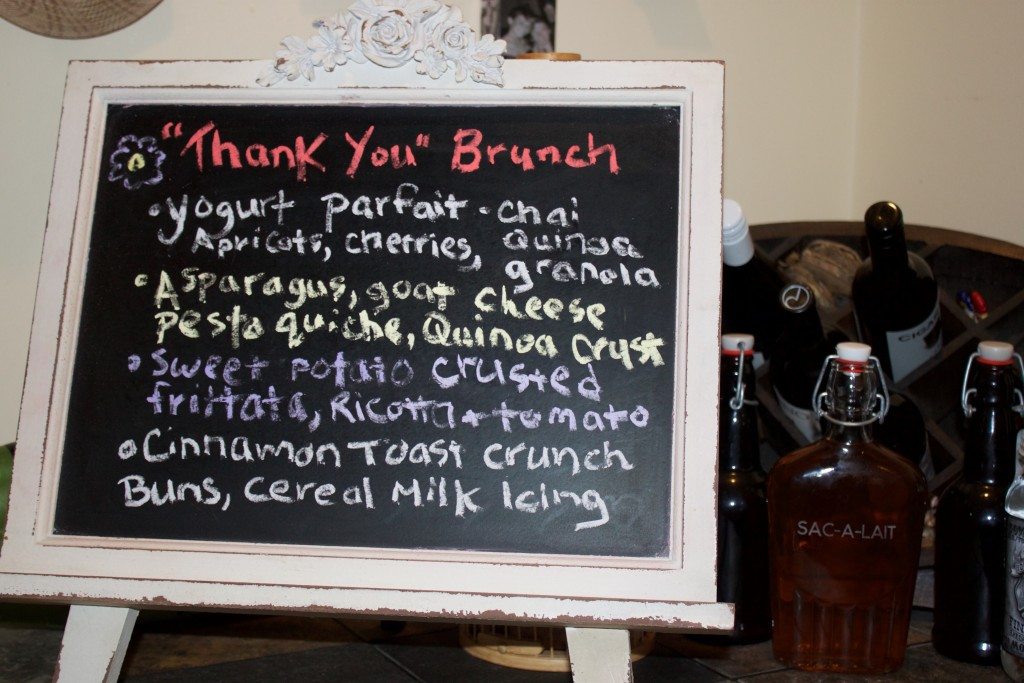 "Thank You" Brunch
• Yogurt parfait - chai
Apricots, cherries, Quinoa
granola
• Asparagus, goat cheese
pesto quiche, Quinoa crust
• Sweet potato crusted
frittata, Ricotta + tomato
• Cinnamon Toast crunch
Buns, cereal Milk Icing
SAC-A-LAIT